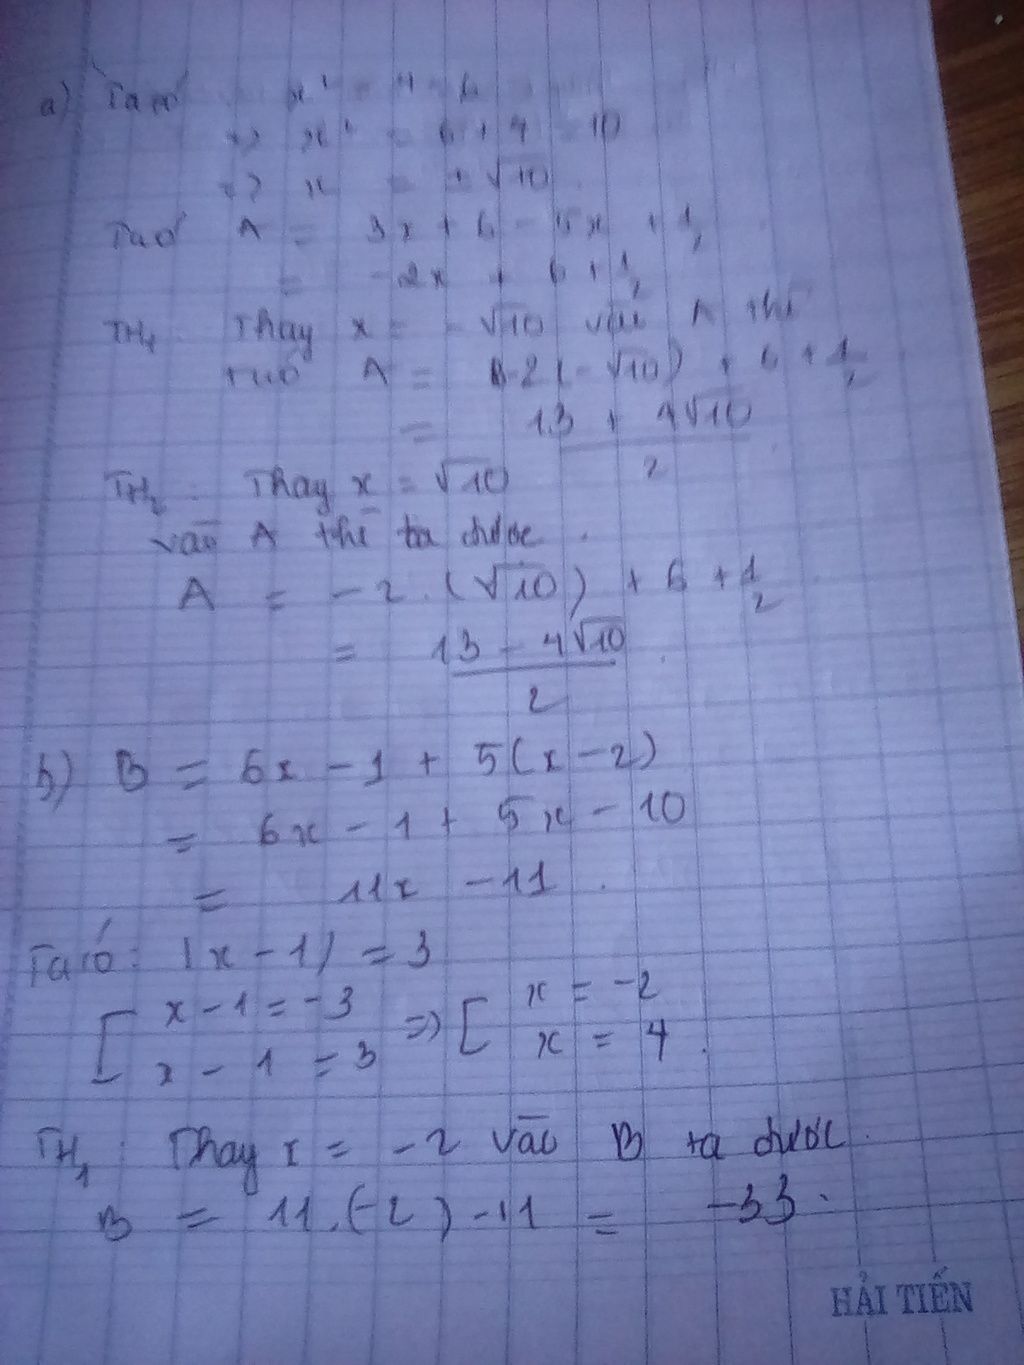 a) Ta có x² - 4 = 6
=> x² = 6 + 4 = 10
=> x = ±√10
Ta có A = 3x + 6 - 5x + 1/2
= -2x + 6 + 1/2
TH1: Thay x = -√10 vào A thì
A = -2(-√10) + 6 + 1/2
= (13 + 4√10)/2
TH2: Thay x = √10
vào A thì ta được.
A = -2.(√10) + 6 + 1/2
= (13 - 4√10)/2.
b) B = 6x - 1 + 5(x - 2)
= 6x - 1 + 5x - 10
= 11x - 11.
Ta có: |x - 1| = 3
[ x - 1 = -3 => [ x = -2
x - 1 = 3 x = 4.
TH1: Thay x = -2 vào B ta được.
B = 11.(-2) - 11 = -33.
HẢI TIẾN